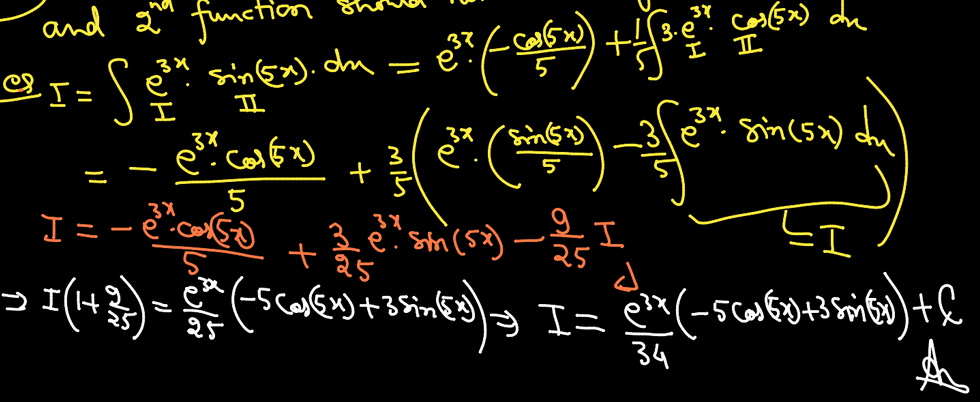 and 2nd function should
eg I = ∫ e^3x · sin(5x) · dx = e^3x · (-cos(5x)/5) + 1/5 ∫ 3 · e^3x · cos(5x) dx
I II I II
= - e^3x · cos(5x)/5 + 3/5 (e^3x · (sin(5x)/5) - 3/5 ∫ e^3x · sin(5x) dx)
= I
I = - e^3x · cos(5x)/5 + 3/25 e^3x · sin(5x) - 9/25 I
⇒ I(1 + 9/25) = e^3x/25 (-5cos(5x) + 3sin(5x)) ⇒ I = e^3x/34 (-5cos(5x) + 3sin(5x)) + C